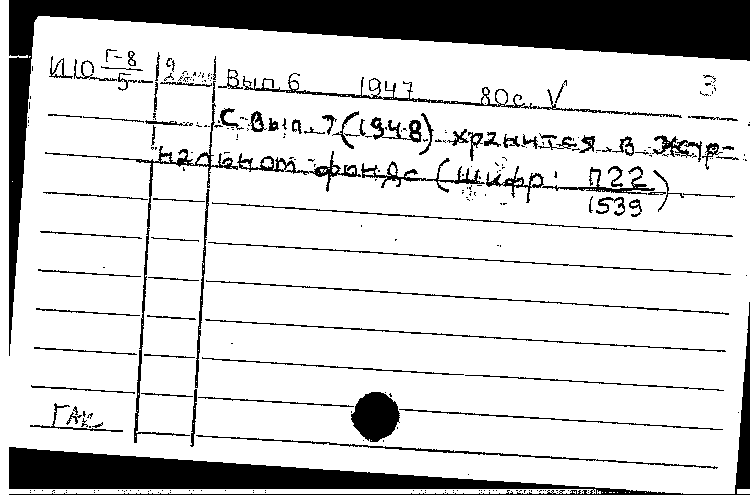 И10 Г-8/5 Вып 6 1947 80с. √ 3
С Вып. 7 (1948) хранится в жур-
нальном фонде (шифр: П22/1539).
ГАК